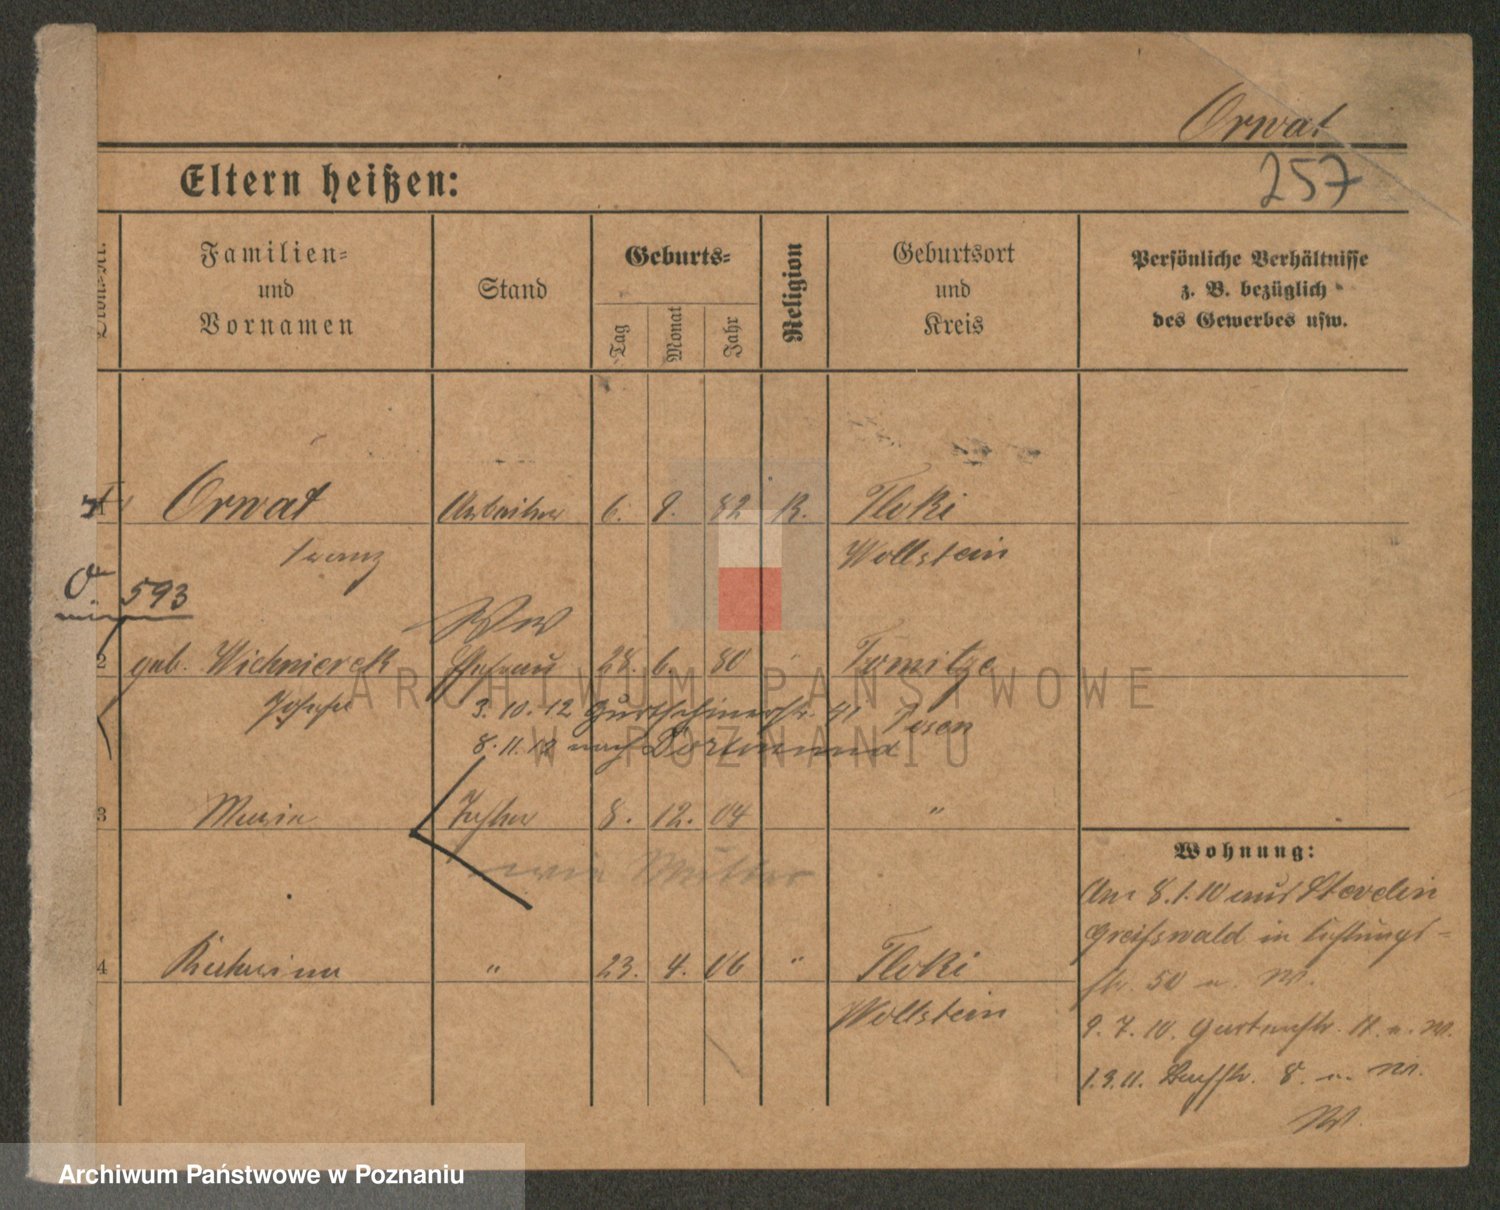 Orwat
257
Eltern heißen:
Familien=
und
Vornamen
Stand
Geburts=
Tag
Monat
Jahr
Religion
Geburtsort
und
Kreis
Persönliche Verhältnisse
z. B. bezüglich
des Gewerbes usw.
1 Orwat Arbeiter 6. 9. 82 K. Tloki
Franz Wollstein
593
Ww
2 geb. Wichnierek Ehefrau 28. 6. 80 " Tomitze
Josefa 3. 10. 12 Gurtschinerstr. 41 Posen
8. 11. 12 nach Dortmund
3 Marie Tochter 8. 12. 04 "
wie Mutter
4 Katharina " 23. 4. 06 " Tloki
Wollstein
Wohnung:
Am 8. 1. 10 aus
Greifswald in
str. 50 n. W.
9. 7. 10. Gartenstr. 11. n. W.
1. 9. 11. 8. n. W.
W.
ARCHIWUM PAŃSTWOWE
W POZNANIU
Archiwum Państwowe w Poznaniu